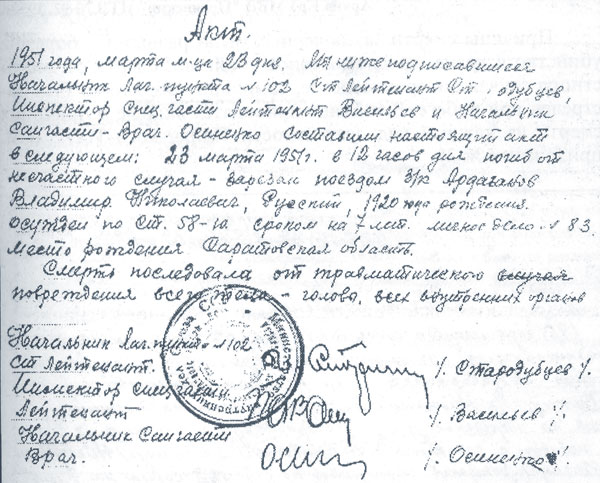 Акт.
1951 года, марта м-ца 23 дня. Мы нижеподписавшиеся
Начальник Лаг.пункта №102 Ст Лейтенант Ст одубцев,
Инспектор Спец.части Лейтенант Васильев и Начальник
Санчасти - Врач. Осиненко составили настоящий акт
в следующем: 23 марта 1951г. в 12 часов дня погиб от
несчастного случая - зарезан поездом з/к
Владимир Николаевич, Русский, 1920 года рождения.
осужден по Ст. 58-1а сроком на 7 лет. личное дело №83.
место рождения Саратовская область.
Смерть последовала от травматического случая
повреждения всего тела - голова, всех внутренних органов
Начальник Лаг.пункта №102
Ст Лейтенант. /. Стародубцев /.
Инспектор спецчасти
Лейтенант /. Васильев /.
Начальник Санчасти
Врач. /. Осиненко /.